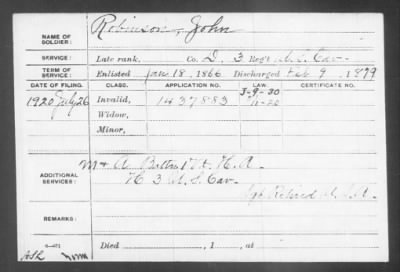 NAME OF SOLDIER: Robinson, John
SERVICE: Late rank, Co. D, 3 Reg't U.S. Cav.
TERM OF SERVICE: Enlisted Jan 18, 1866 Discharged Feb 9, 1879
DATE OF FILING. CLASS. APPLICATION NO. LAW. CERTIFICATE NO.
1920 July 26 Invalid, 1437883 J-9-30
11-20
Widow,
Minor,
ADDITIONAL SERVICES: M + A Battns 1 St. H. A.
H 3 U.S. Cav.
Sgt Retired U.S.A.
REMARKS:
Died , 1 , at